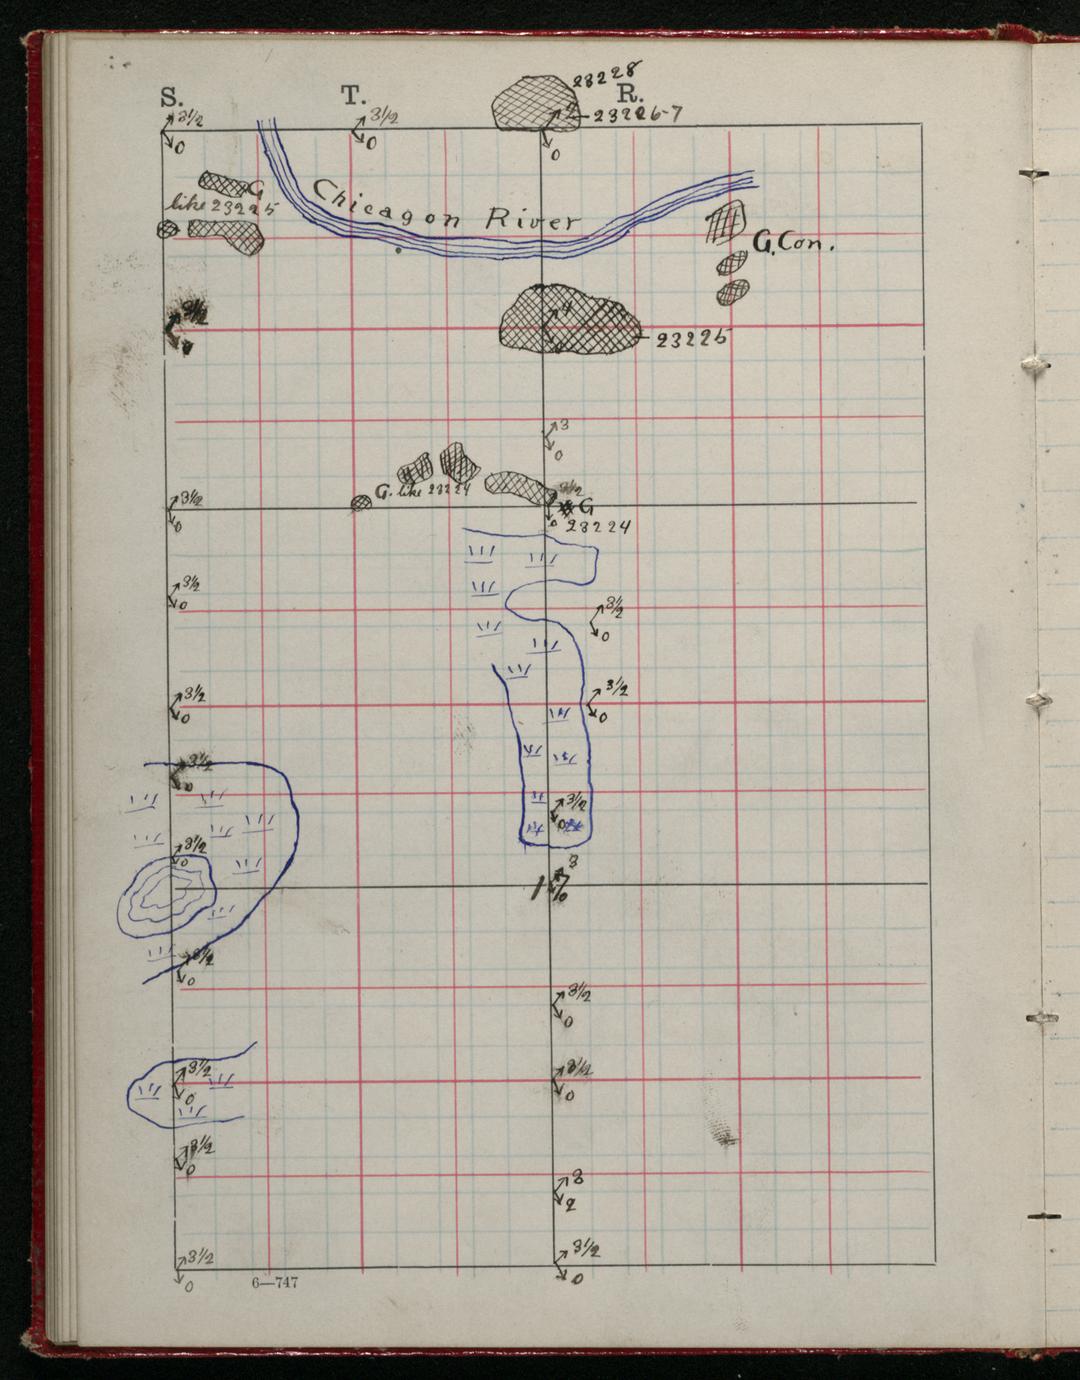 23228
S. T. R.
3 1/2 3 1/2 2 23226-7
0 0 0
G
like 23225
Chicagon River
G. Con.
3 1/2 4
0 0
23225
3
0
G. like 23224
3 1/2 3 1/2 G
0 0
23224
3 1/2 3 1/2
0 0
3 1/2 3 1/2
0 0
3 1/2
0
3 1/2
0
3 1/2 3
0
3 1/2
0
3 1/2
0
3 1/2 3 1/2
0 0
3 1/2
0
3
2
3 1/2 3 1/2
0 0
6—747